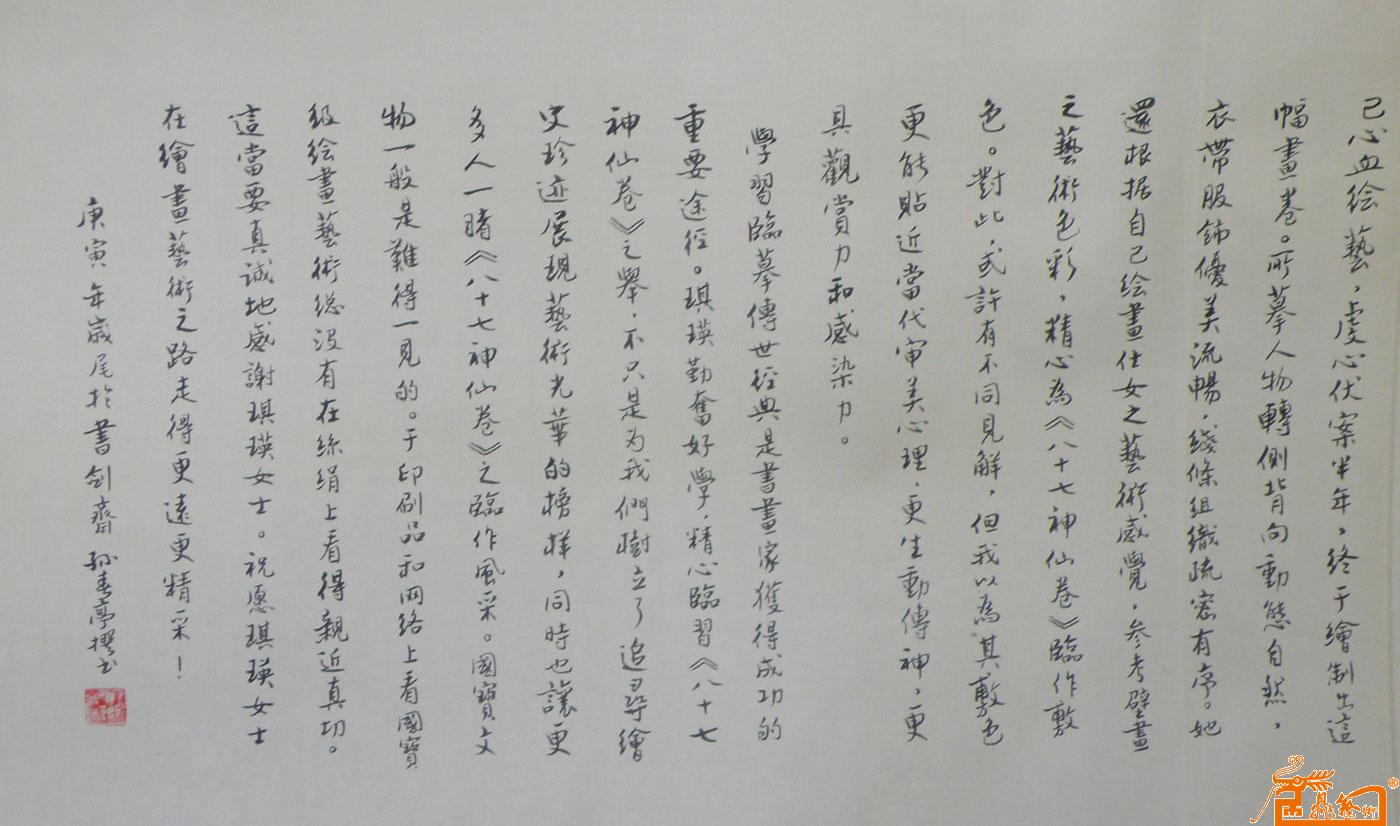 己心血绘藝，虔心伏案半年，终于繪制出這
幅畫卷。所摹人物轉側背向動態自然，
衣帶服飾優美流暢，綫條組織疏密有序。她
還根据自己绘畫仕女之藝術感覺，参考壁畫
之藝術色彩，精心為《八十七神仙卷》臨作敷
色。對此，或許有不同見解，但我以為其敷色
更能貼近當代审美心理，更生動傳神，更
具觀賞力和感染力。
學習臨摹傳世经典是書畫家獲得成功的
重要途径。琪瑛勤奮好學，精心臨習《八十七
神仙卷》之舉，不只是为我們樹立了追尋繪
史珍迹展現藝術光華的榜样，同時也讓更
多人一睹《八十七神仙卷》之臨作風采。國寶文
物一般是難得一見的。于印刷品和网络上看國寶
级绘畫藝術总没有在絲绢上看得親近真切。
這當要真誠地感謝琪瑛女士。祝愿琪瑛女士
在繪畫藝術之路走得更遠更精采！
庚寅年歲尾於書剑齋 孙春亭撰书